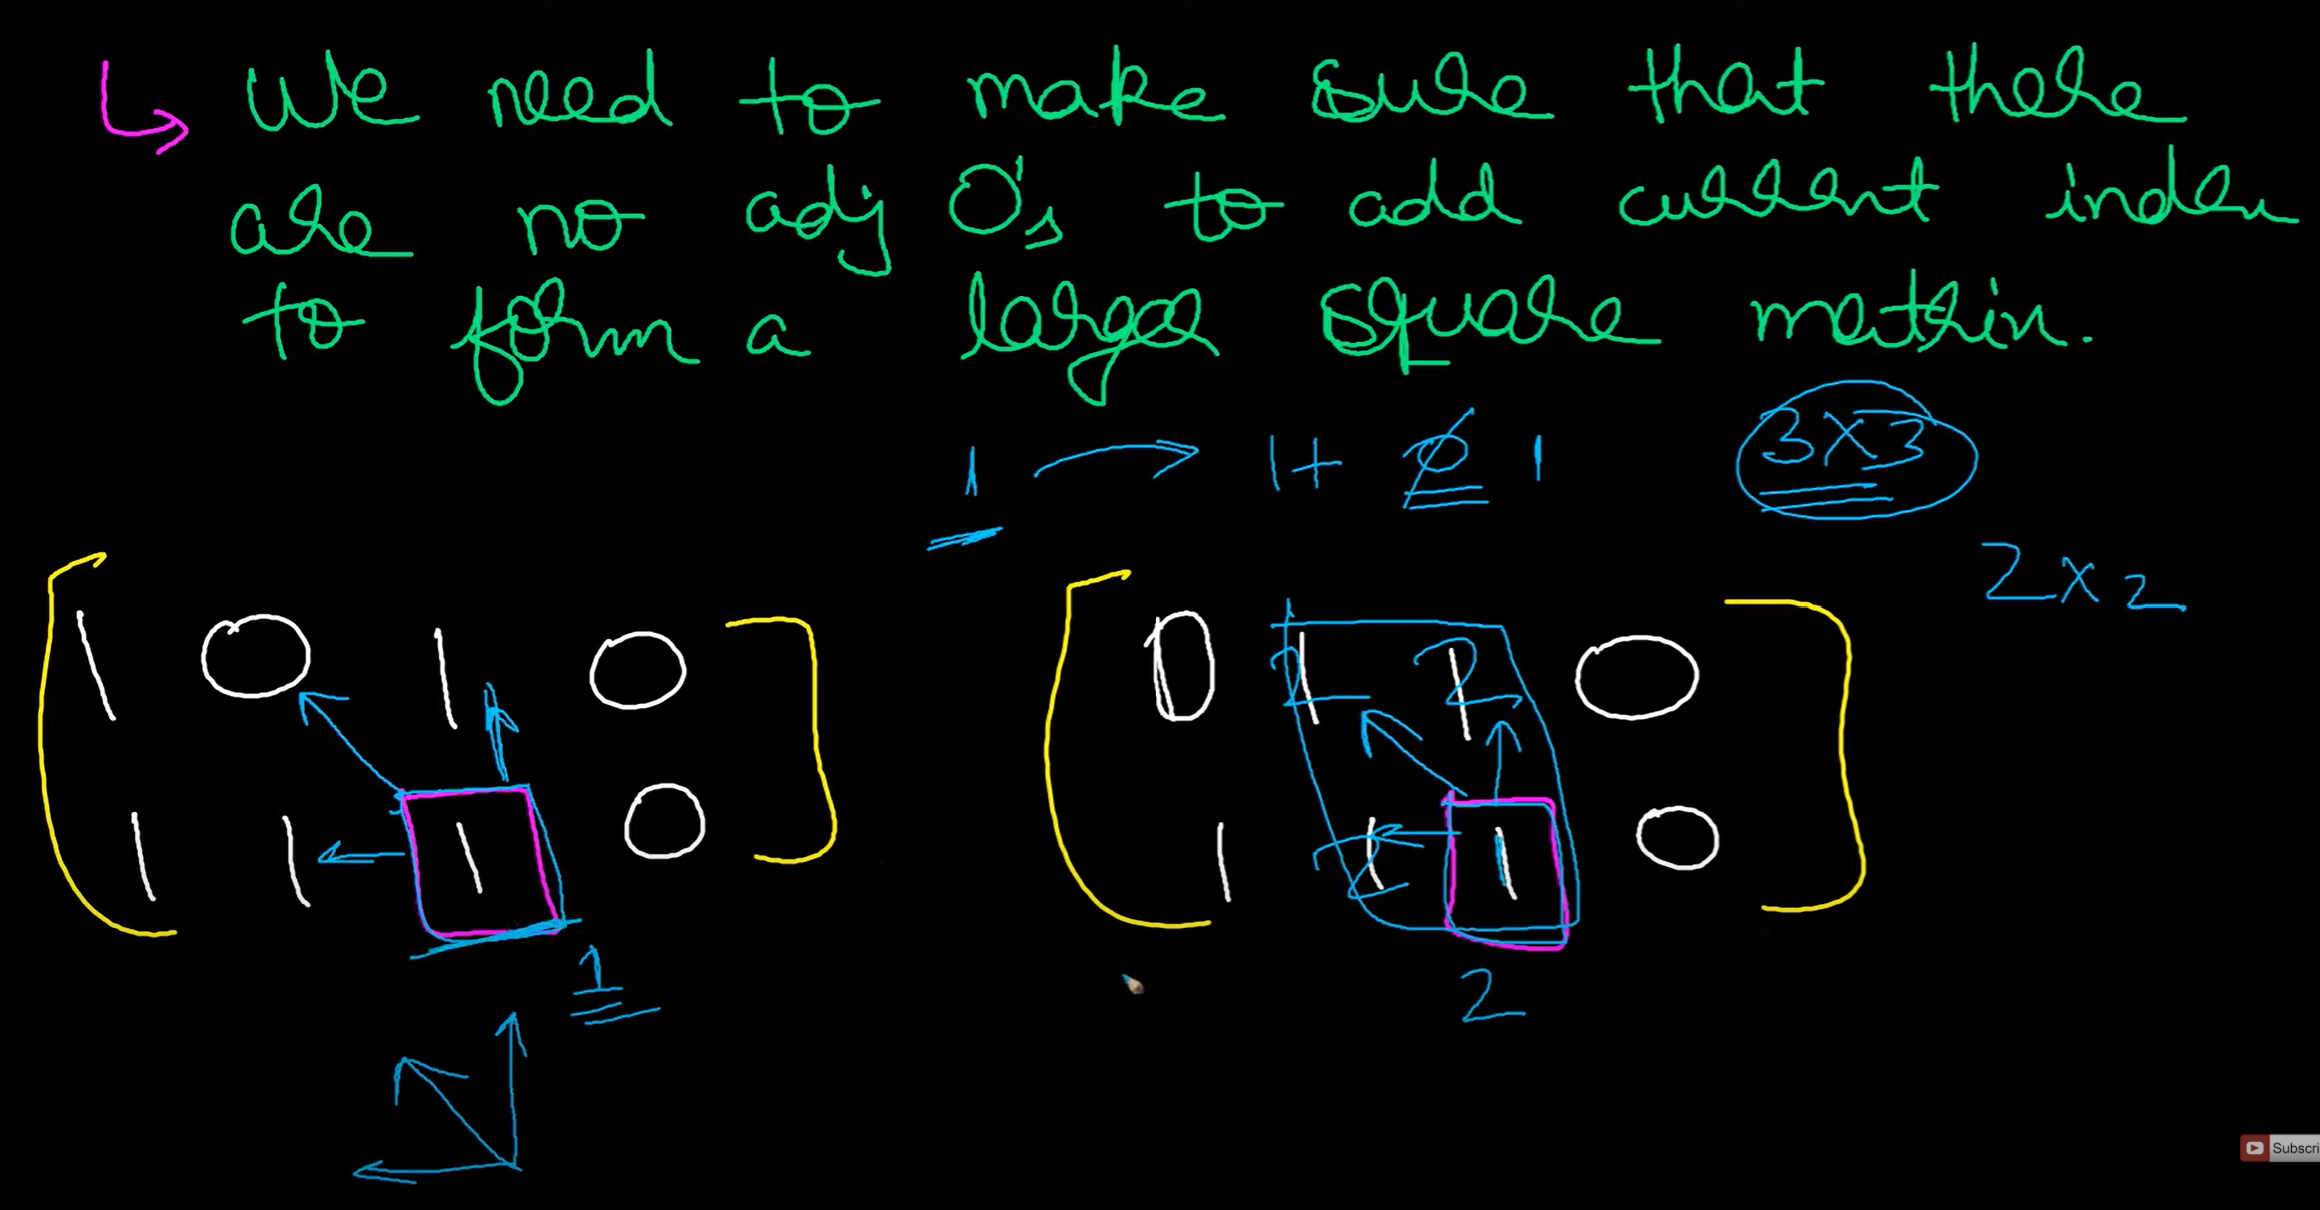 We need to make sure that there
are no adj 0's to add current index
to form a larger square matrix.
1 → 1 + 1 3X3
2 x 2
1 0 1 0
1 1 1 0
0 1 1 0
1 1 1 0
2 2
2
1
2
Subscri